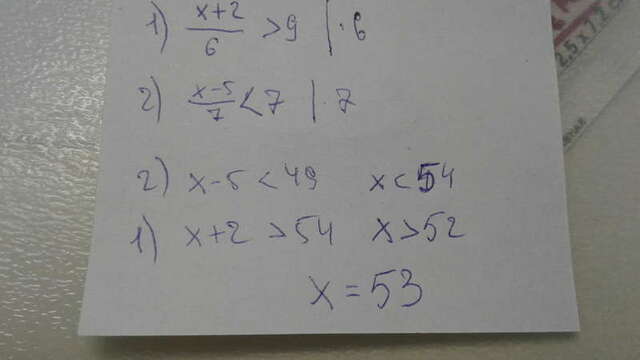 1) x+2/6 >9 | · 6
2) x-5/7 <7 | · 7
2) x-5 <49 x<54
1) x+2 >54 x>52
x=53
2,5x7,2c